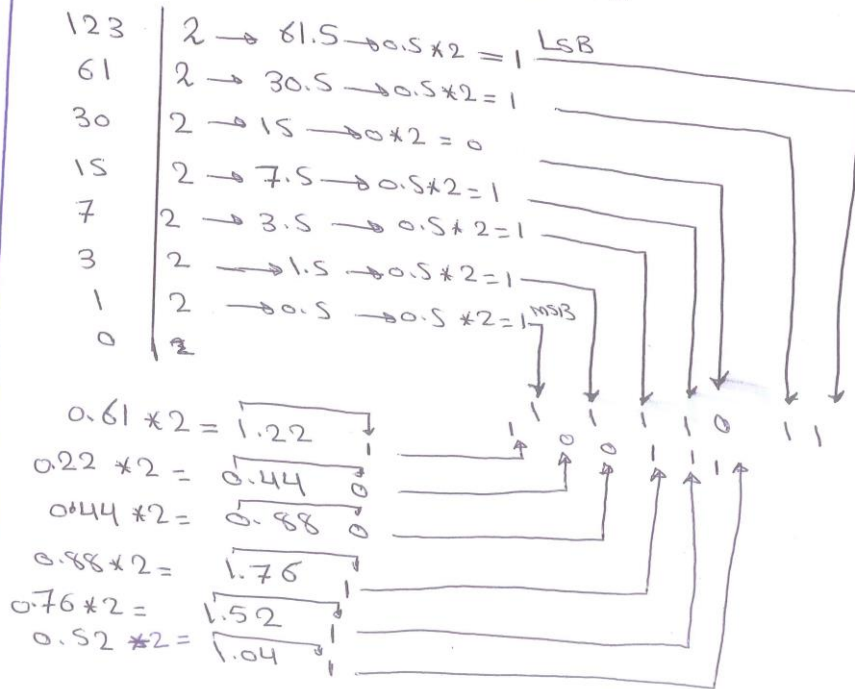 123 | 2 → 61.5 → 0.5*2 = 1 LSB
61 2 → 30.5 → 0.5*2=1
30 2 → 15 → 0*2 = 0
15 2 → 7.5 → 0.5*2=1
7 2 → 3.5 → 0.5*2=1
3 2 → 1.5 → 0.5*2=1
1 2 → 0.5 → 0.5*2=1 MSB
0 2
1 1 1 1 0 1 1
0.61 *2= 1.22 1
1 0 0 1 1 1
0.22 *2= 0.44 0
0.44 *2= 0.88 0
0.88*2= 1.76 1
0.76*2= 1.52 1
0.52 *2= 1.04 1